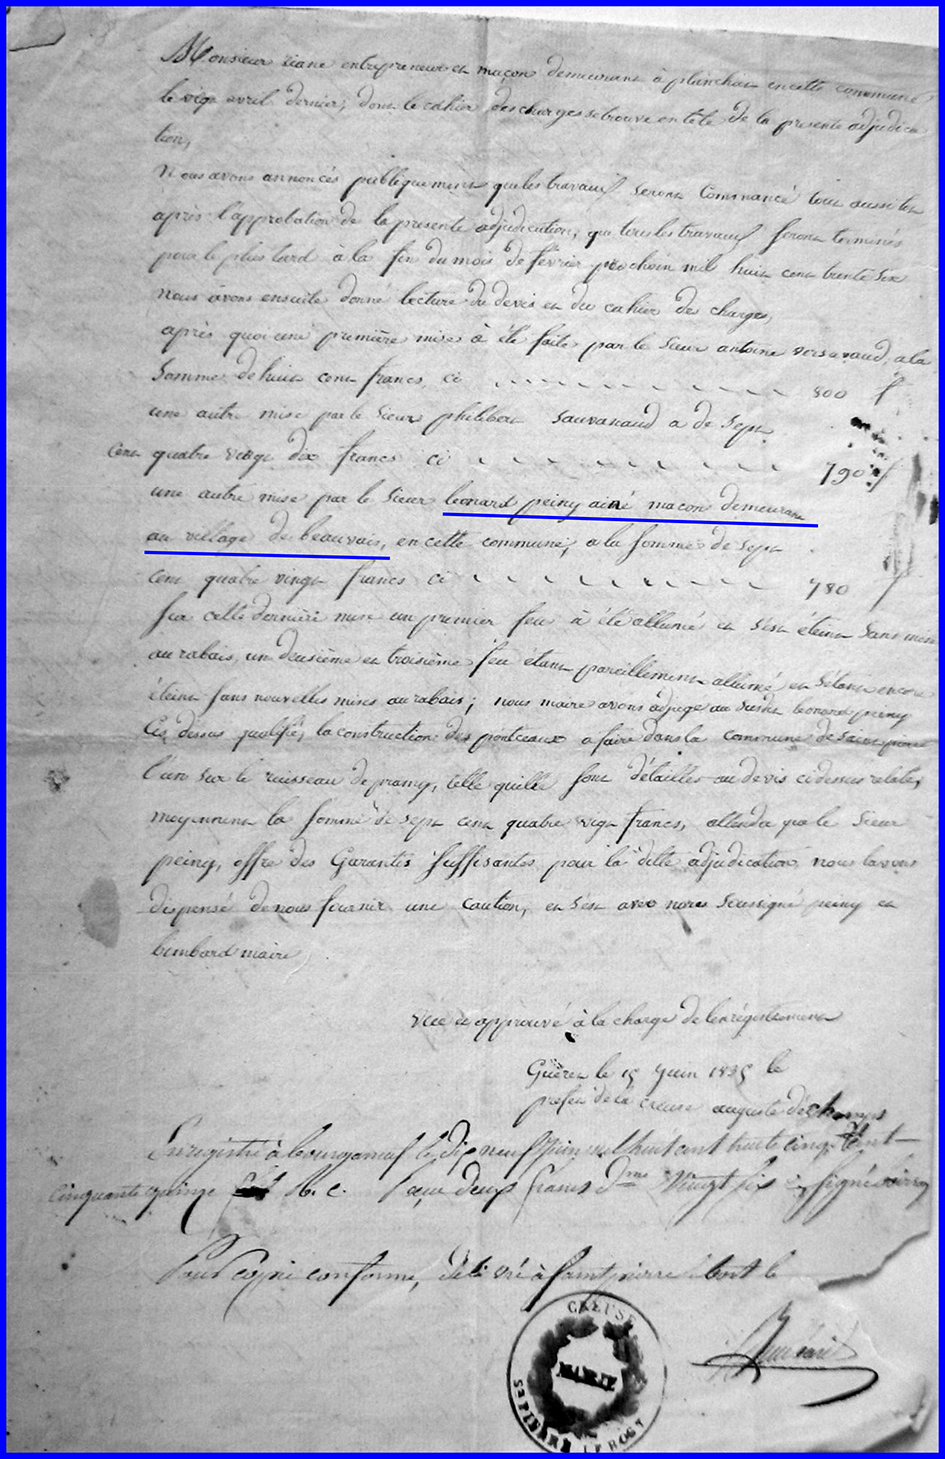 Monsieur entrepreneur et maçon demeurant à planchat en cette commune
le avril dernier, dont le cahier des charges se trouve en tête de la presente adjudica
tion,
Nous avons annoncés publiquement que les travaux seront Commancé tout aussitot
après l'approbation de la presente adjudication, que tous les travaux seront terminés
pour le plus tard à la fin du mois de fevrier prochain mil huit cent trente six
nous avons ensuite donné lecture du devis et du cahier des charges,
après quoi une première mise à été faite par le Sieur antoine versavaud, a la
Somme de huit cent francs, ci 800 f
une autre mise par le Sieur philibert Sauvanaud a de Sept
Cent quatre vingt dix francs ci 790 f
une autre mise par le Sieur leonard peiny ainé macon demeurant
au village de beauvais, en cette commune, a la somme de Sept
cent quatre vingt francs ci 780 f
sur cette dernière mise un premier feu à été allumé et s'est éteint sans mise
au rabais, un deusième et troisième feu etant pareillement allumé et s'étant encore
éteint sans nouvelles mises au rabais; nous maire avons adjugé au susdit leonard peiny
Ci dessus qualifié, la construction des pontceaux a faire dans la commune de Saint pierre
l'un sur le ruisseau de telle quille sont détaillés au devis ci dessus relaté,
moyennent la somme de sept cent quatre vingt francs, attendu que le Sieur
peiny, offre des Garantis suffisantes, pour la ditte adjudication, nous lavons
dispensé de nous fournir une caution, et s'est avec nous Soussigné peiny et
maire
Vue et approuvé à la charge de lenregistrement
Guéret le 15 Juin 1835 le
prefet de la creuse auguste deschamps
Enregistré à bourganeuf le dix neuf Juin mil huit cent trente cinq
cinquante quinze R. c. Reçu deux francs dme Vingt six c. signé
Pour copie conforme, délivré à saint pierre le bost le
CREUSE
MAIRIE
ST PIERRE LE BOST